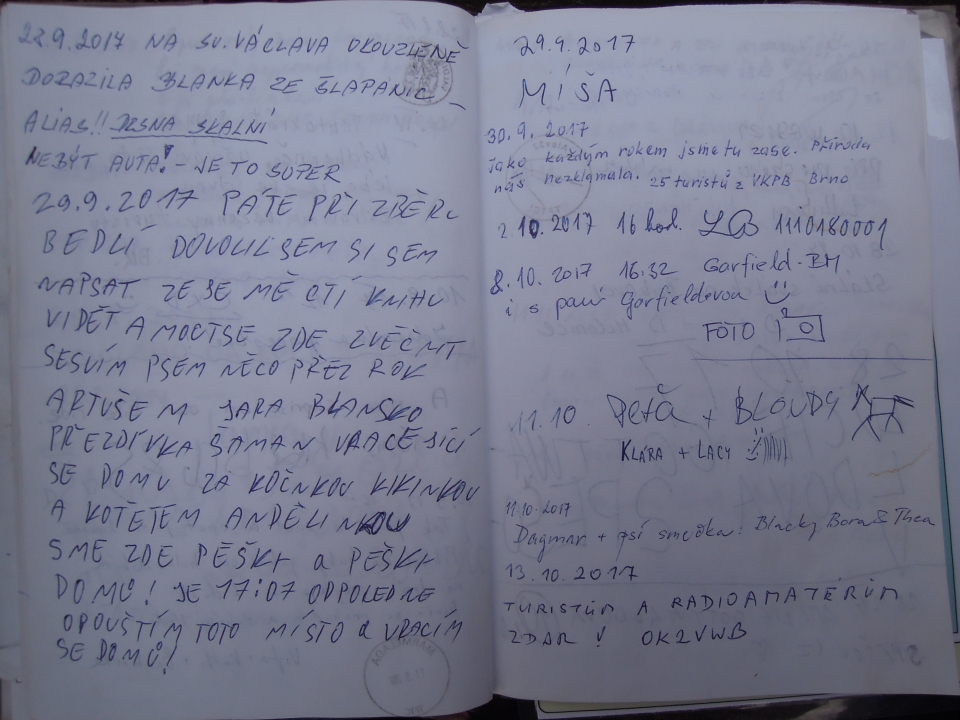 28.9.2017 NA SV. VÁCLAVA OKOUZLENĚ
DORAZILA BLANKA ZE ŠLAPANIC –
ALIAS!! DRSNA SKALNÍ
NEBÝT AUTA! – JE TO SUPER
29.9.2017 PÁTE PŘI ZBĚRU
BEDLÍ DOVOLIL SEM SI SEM
NAPSAT ZE SE MĚ CTÍ KNIHU
VIDĚT A MOCT SE ZDE ZVĚČNIT
SESVÍM PSEM NĚCO PŘEZ ROK
ARTUŠEM JARA BLANSKO
PŘEZDÍVKA ŠAMAN VRACEJÍCÍ
SE DOMU ZA KOČINKOU KIKINKOU
A KOTĚTEM ANDĚLINKOU
SME ZDE PĚŠKY a PĚŠKY
DOMŮ! JE 17:07 ODPOLEDNE
OPOUŠTÍM TOTO MÍSTO a VRACÍM
SE DOMŮ!
29.9.2017
MÍŠA
30.9.2017
Jako každým rokem jsme tu zase. Příroda
nás nezklamala. 25 turistů z VKPB Brno
2.10.2017 16 hod. LB 1110180001
8.10.2017 16:32 Garfield-BM
i s paní Garfieldovou
FOTO
11.10. Peťa + BLOUDY
KLÁRA + LACY
11.10.2017
Dagmar + psí smečka: Blacky Bora & Thea
13.10.2017
TURISTŮM A RADIOAMATÉRŮM
ZDAR! OK2VWB